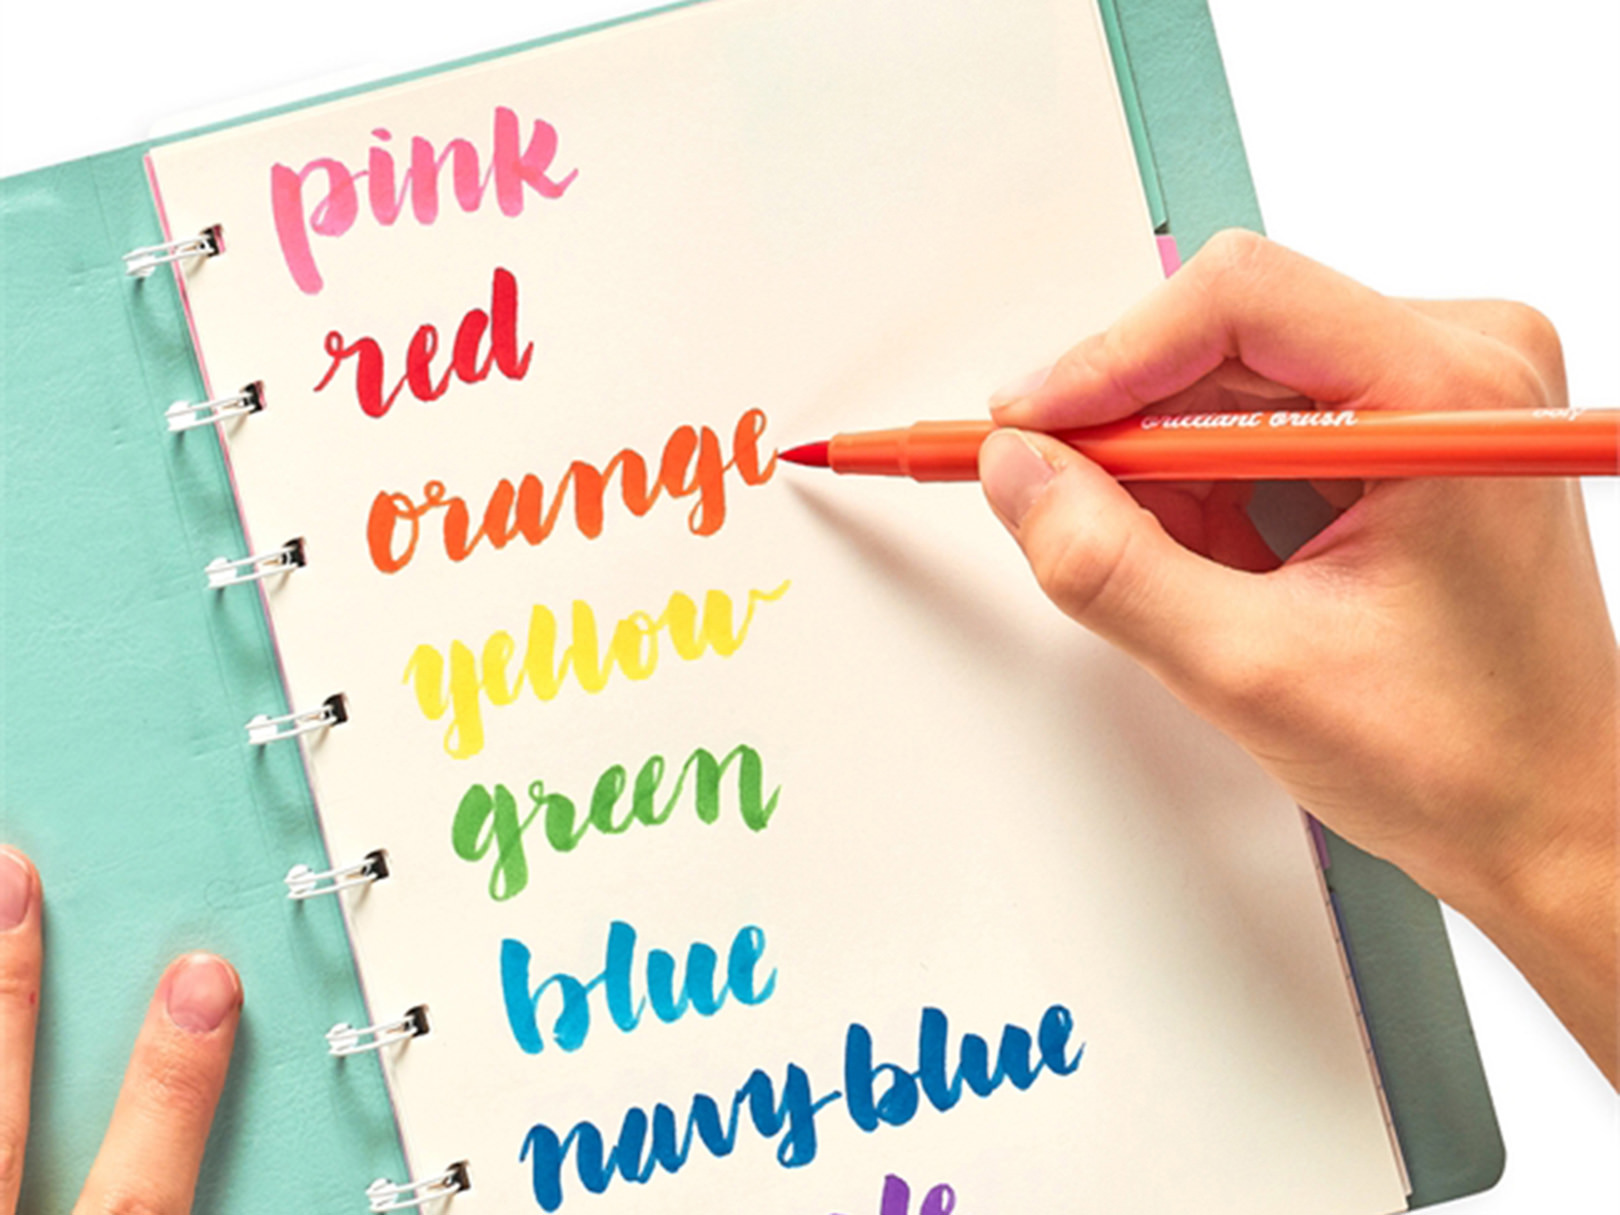 pink
red
orange
brilliant brush
yellow
green
blue
navy blue